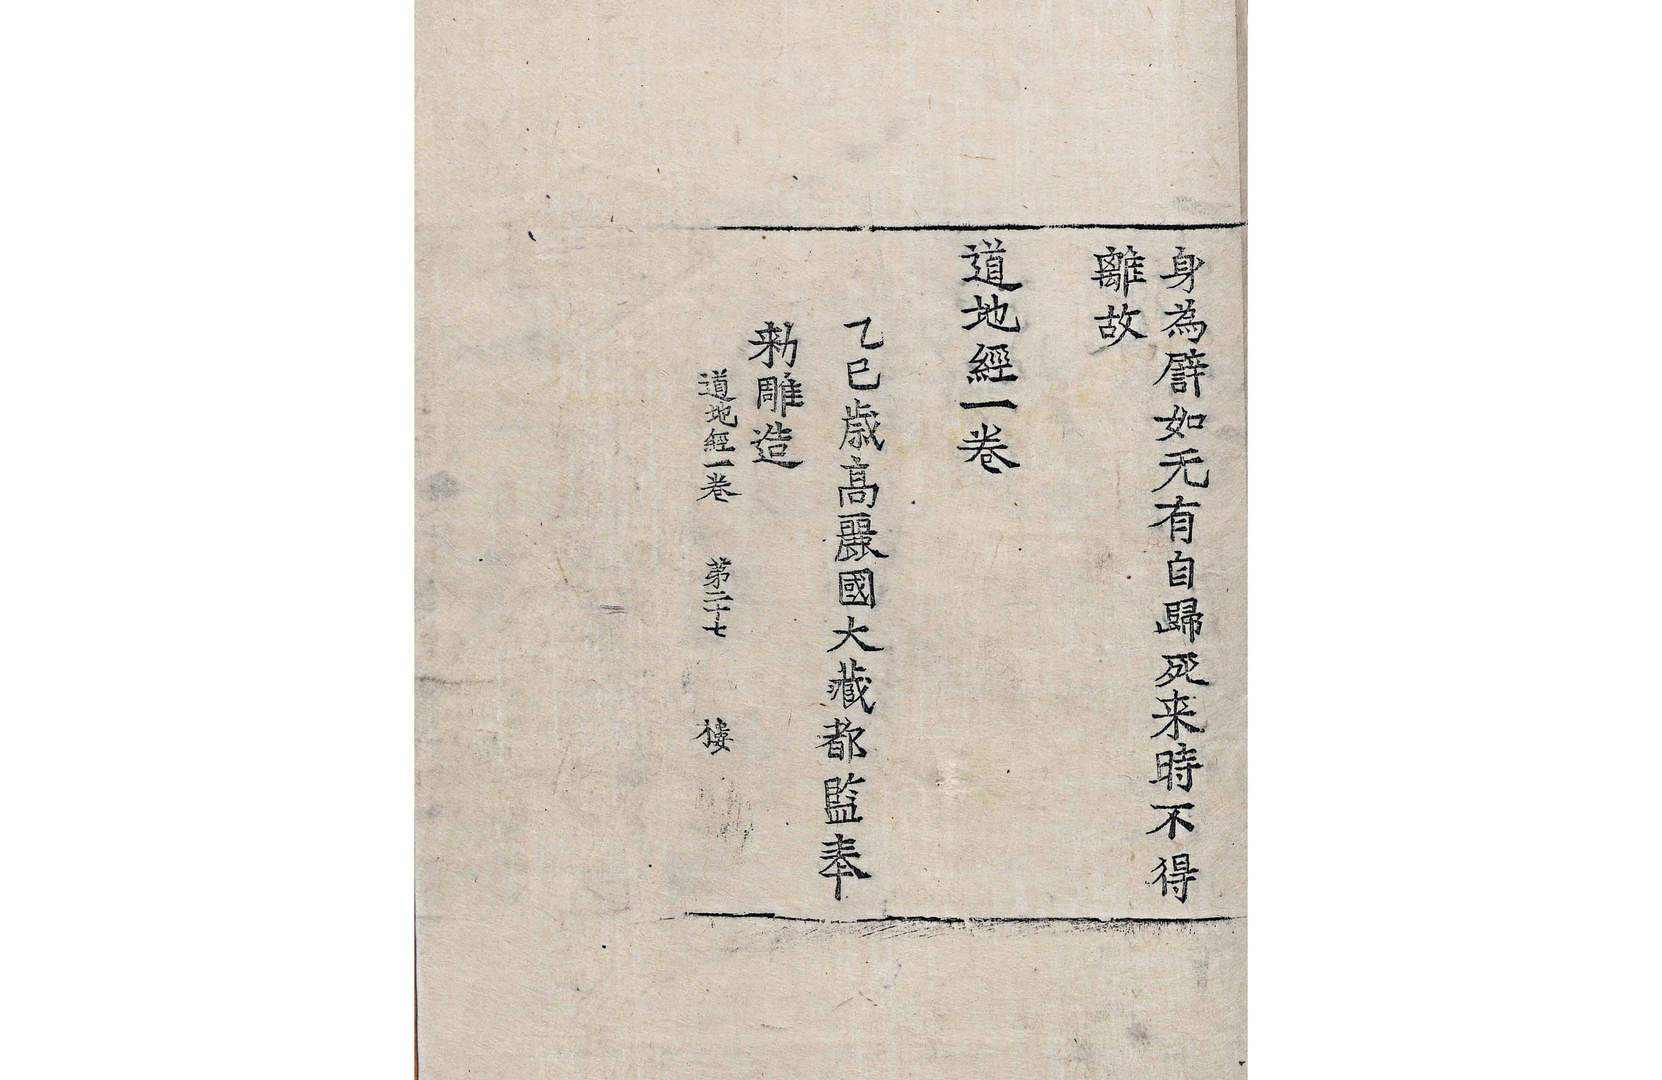 身為譬如无有自歸死来時不得
離故
道地經一卷
乙巳歳高麗國大藏都監奉
勑雕造
道地經一卷 第二十七 樓